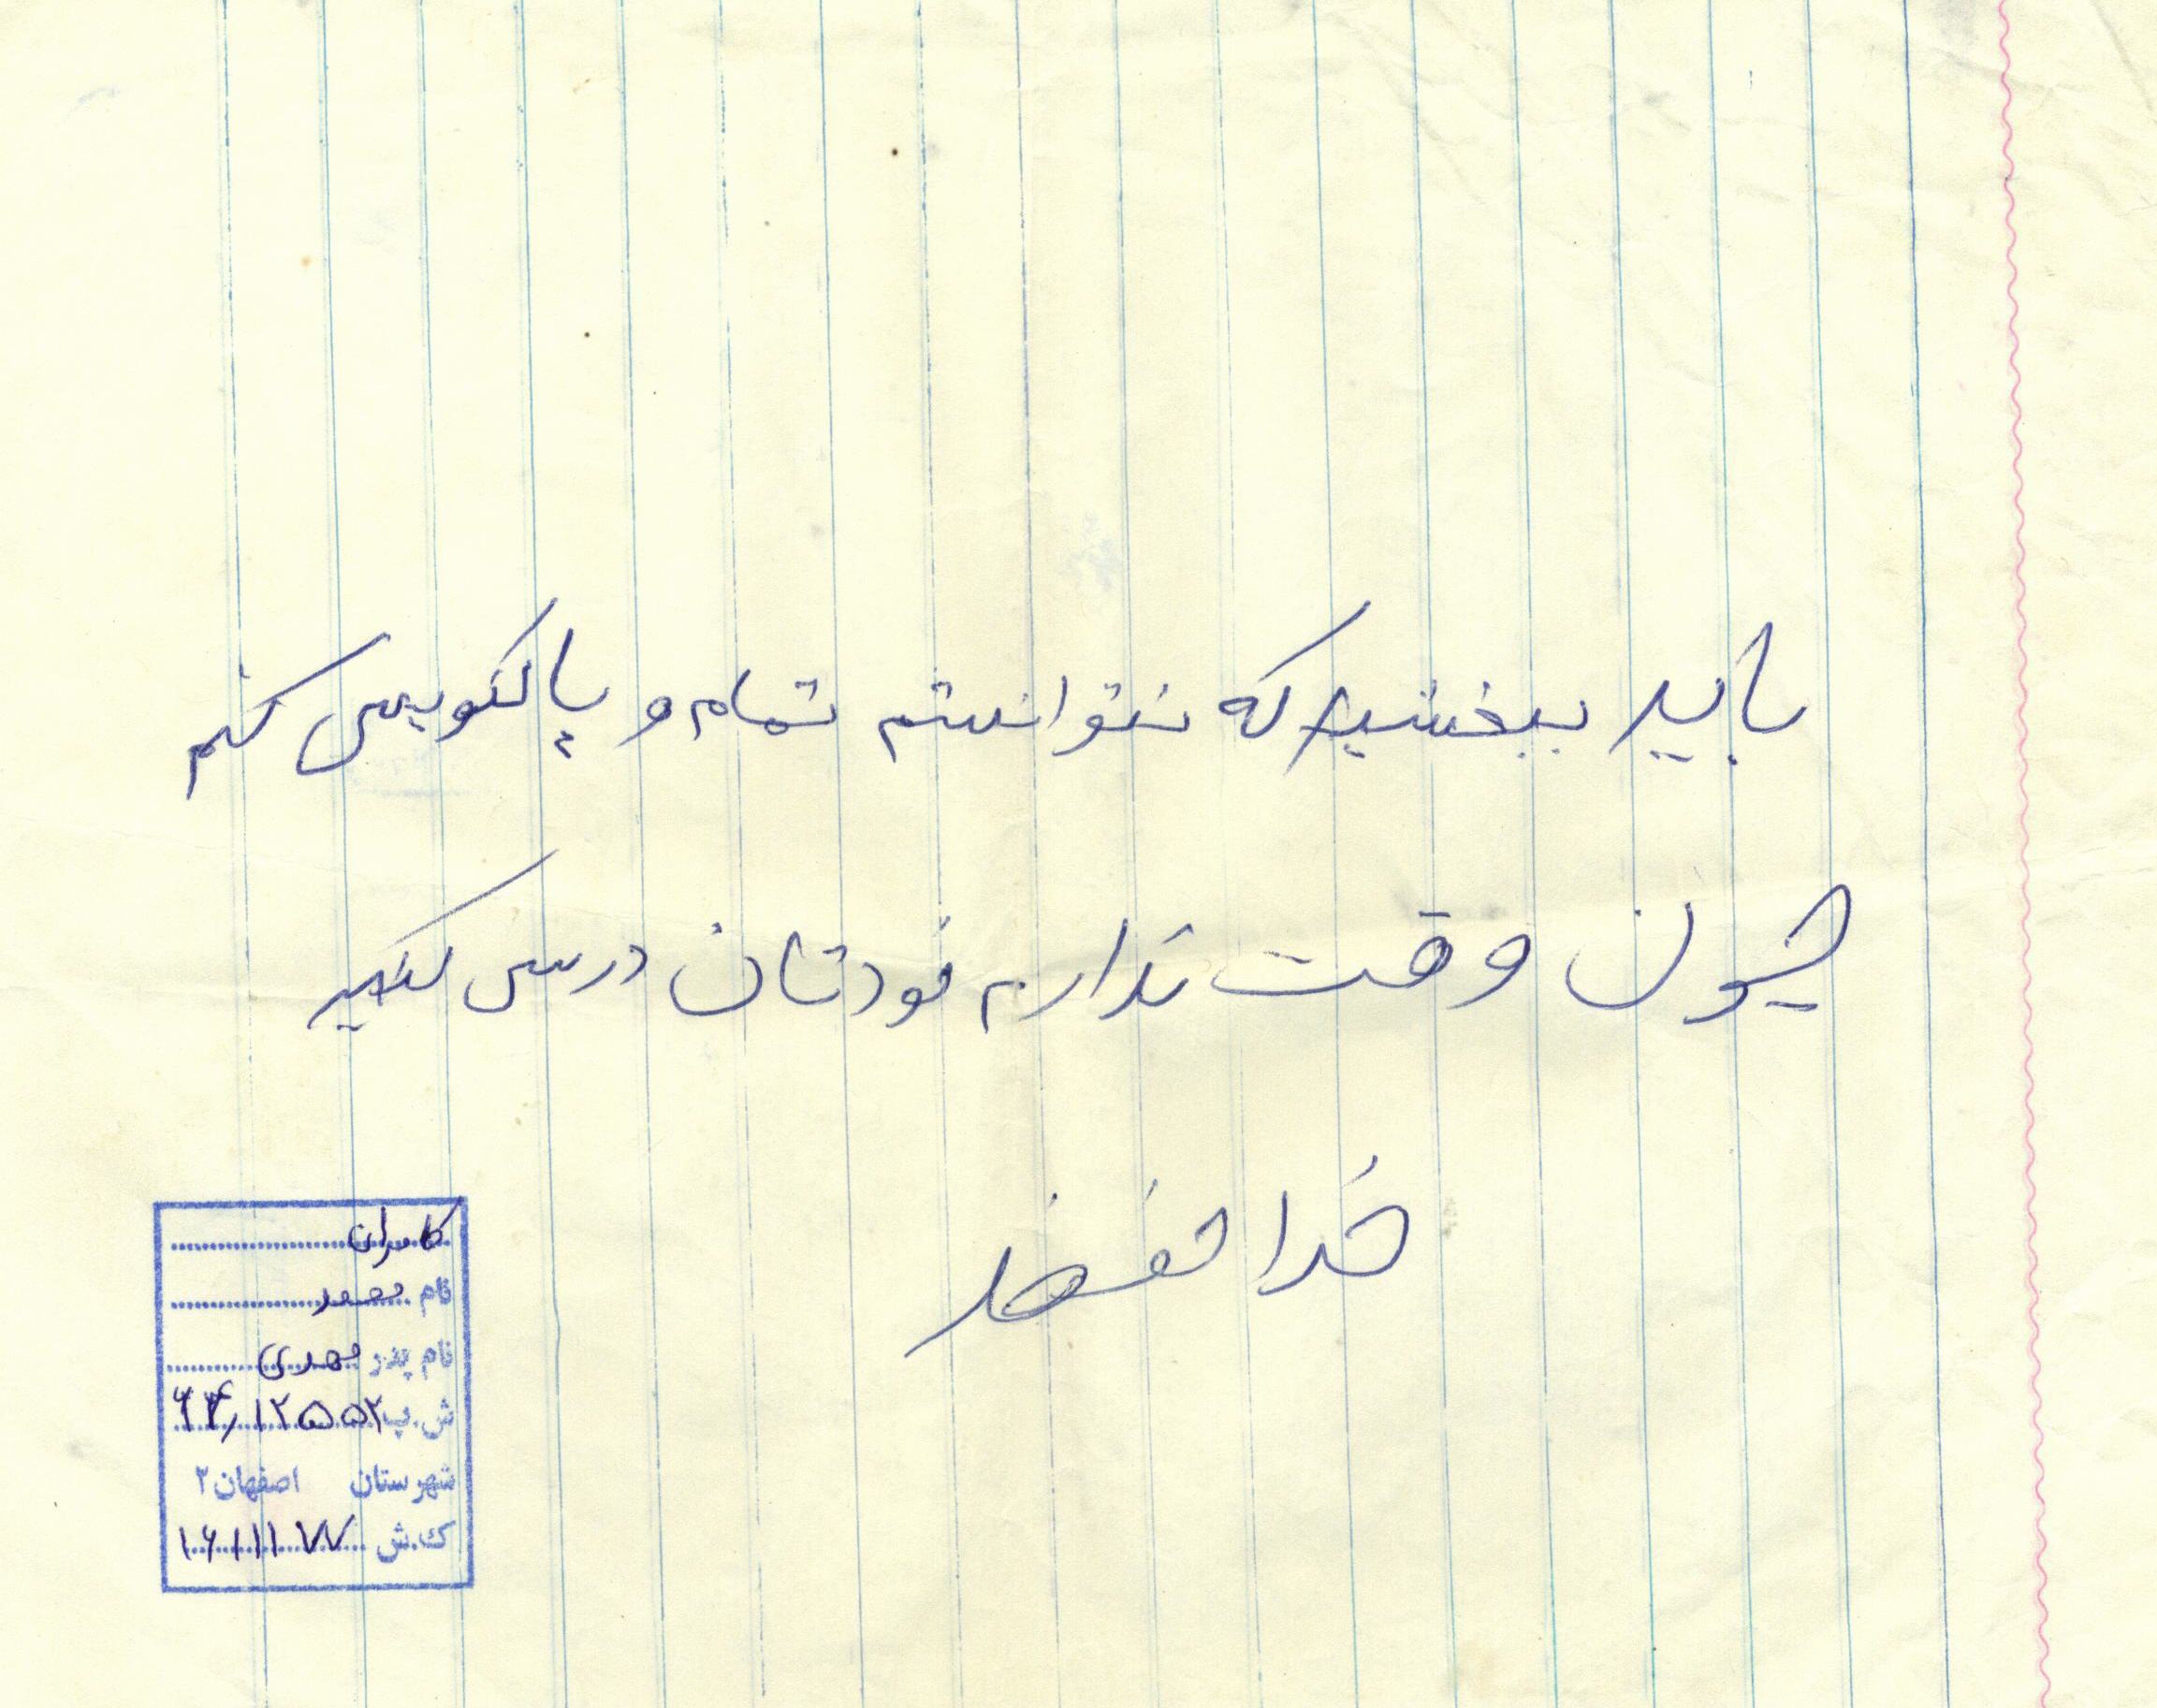 باید ببخشید که نتوانستم تمام و پاکنویس کنم
چون وقت ندارم خودتان درس کنید
خدا حفض
کامران
نام محمد
نام پدر مهدی
ش.پ ۶۴٫۱۲۵۵۲
شهرستان اصفهان ۲
ک.ش ۱۶۱۱۱۷۷